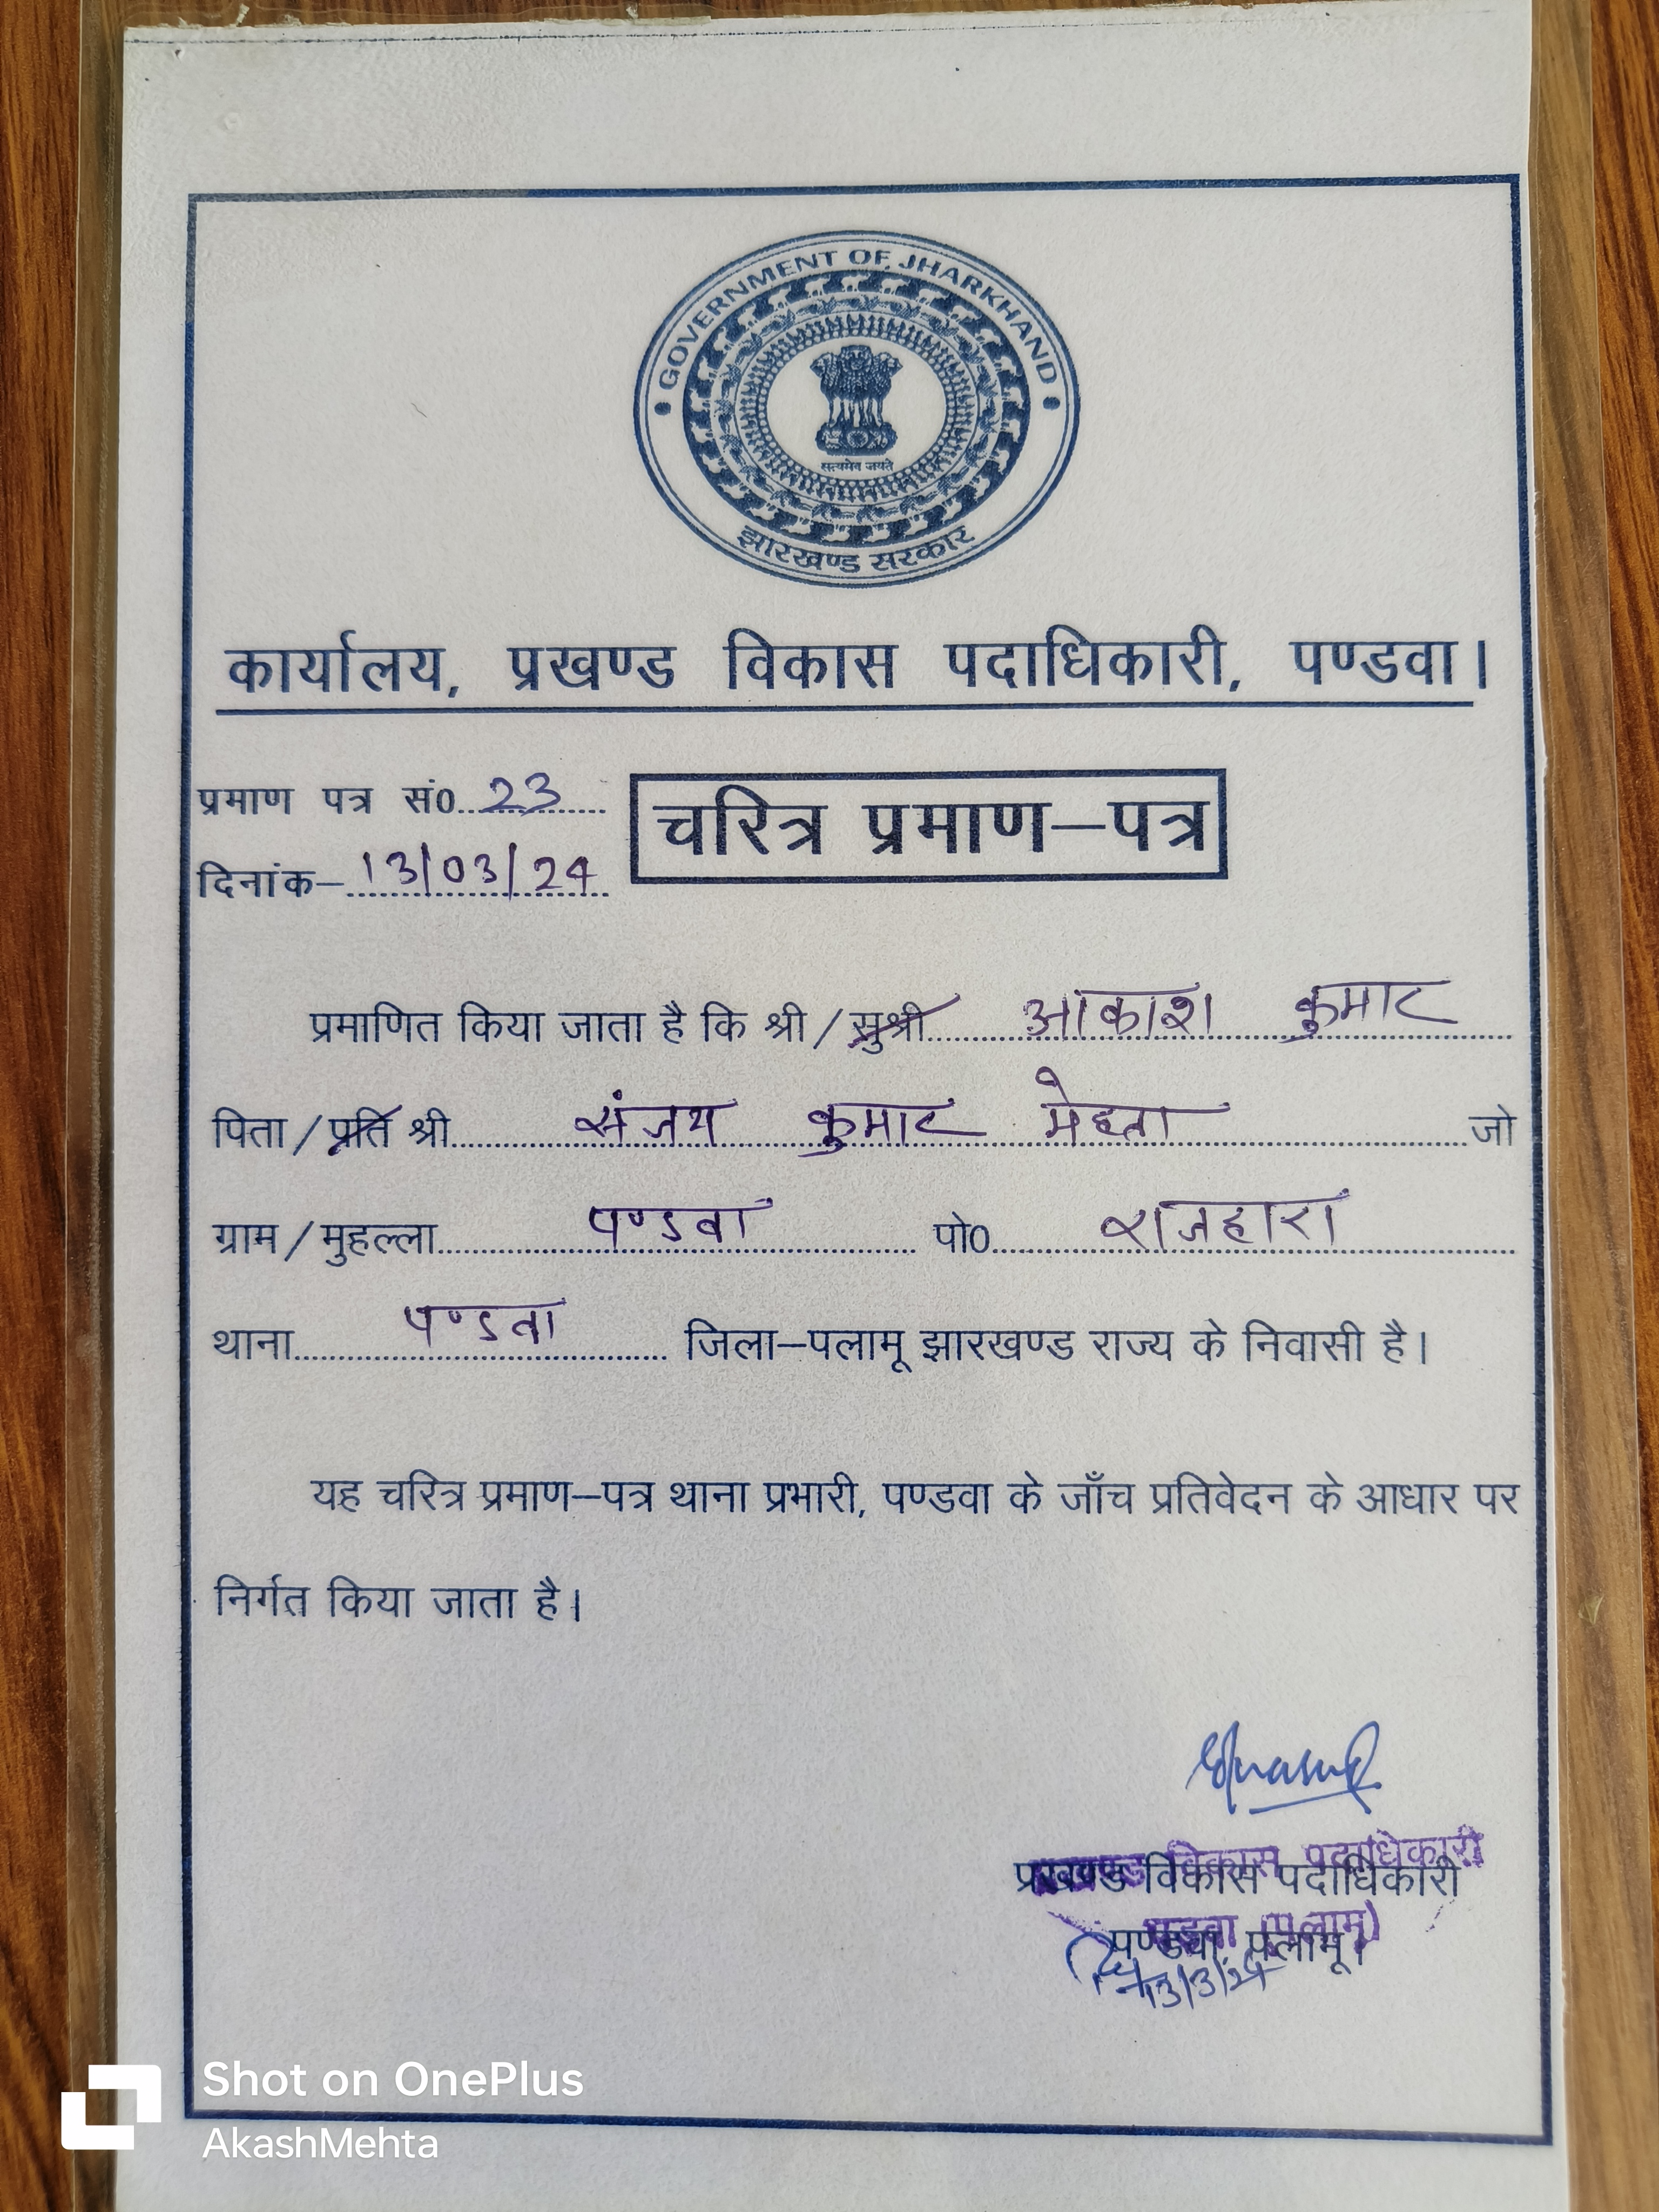 GOVERNMENT OF JHARKHAND
सत्यमेव जयते
झारखण्ड सरकार
कार्यालय, प्रखण्ड विकास पदाधिकारी, पण्डवा।
प्रमाण पत्र सं0..23
चरित्र प्रमाण–पत्र
दिनांक–13/03/24
प्रमाणित किया जाता है कि श्री / सुश्री आकाश कुमार
पिता / प्रति श्री संजय कुमार मेहता जो
ग्राम / मुहल्ला पण्डवा पो0 राजहारा
थाना पण्डवा जिला–पलामू झारखण्ड राज्य के निवासी है।
यह चरित्र प्रमाण–पत्र थाना प्रभारी, पण्डवा के जाँच प्रतिवेदन के आधार पर
निर्गत किया जाता है।
प्रखण्ड विकास पदाधिकारी
प्रखण्ड विकास पदाधिकारी
पंडवा (पलामू)
पण्डवा, पलामू।
13/3/24
Shot on OnePlus
AkashMehta